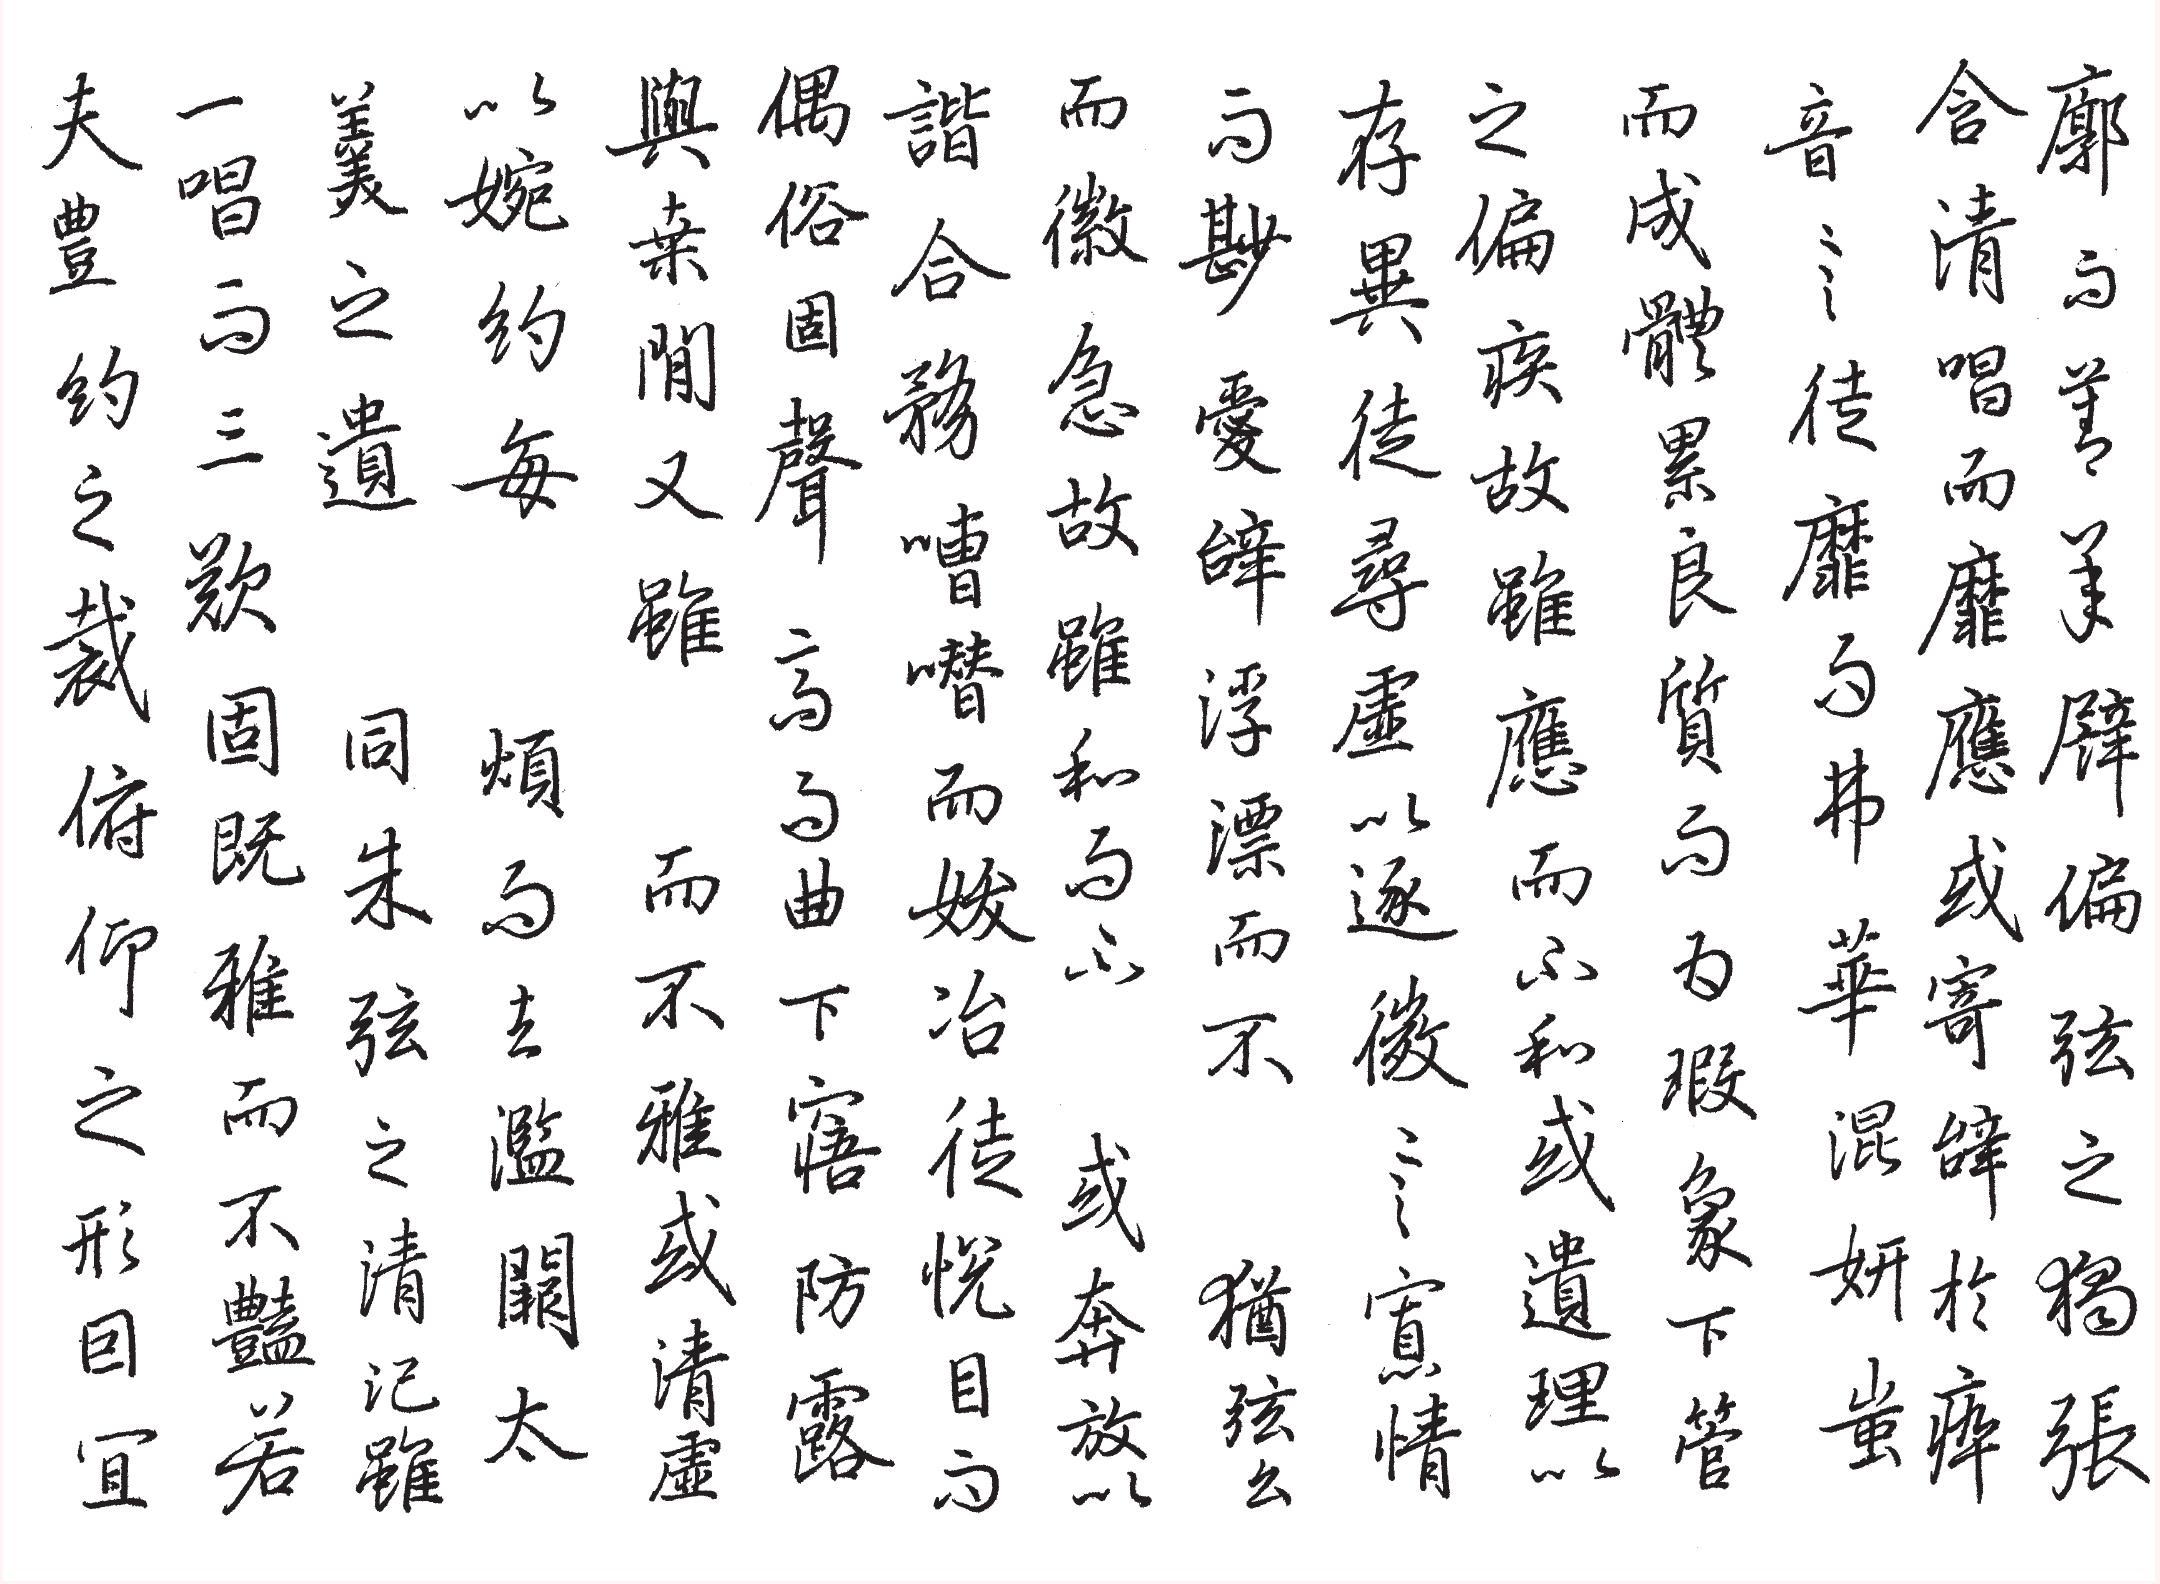 廓而莫承辟偏弦之獨張
含清唱而靡應或寄辭於瘁
音言徒靡而弗華混妍蚩
而成體累良質而為瑕象下管
之偏疾故雖應而不和或遺理以
存異徒尋虛以逐微言寡情
而尠愛辭浮漂而不 猶弦么
而徽急故雖和而不 或奔放以
諧合務嘈囋而妖冶徒悅目而
偶俗固聲高而曲下寤防露
與桒間又雖 而不雅或清虛
以婉約每 煩而去濫闕太
羹之遺 同朱弦之清氾雖
一唱而三歎固既雅而不豔若
夫豐約之裁俯仰之形因宜